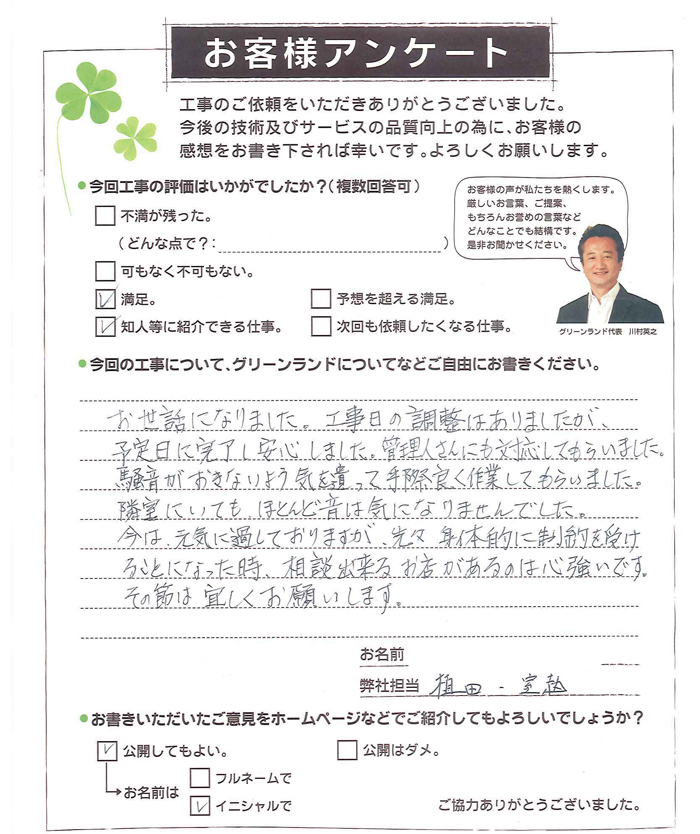 お客様アンケート
工事のご依頼をいただきありがとうございました。
今後の技術及びサービスの品質向上の為に、お客様の
感想をお書き下されば幸いです。よろしくお願いします。
●今回工事の評価はいかがでしたか?(複数回答可)
不満が残った。
(どんな点で?: )
可もなく不可もない。
満足。 予想を超える満足。
知人等に紹介できる仕事。 次回も依頼したくなる仕事。
お客様の声が私たちを熱くします。
厳しいお言葉、ご提案、
もちろんお誉めの言葉など
どんなことでも結構です。
是非お聞かせください。
グリーンランド代表 川村英之
●今回の工事について、グリーンランドについてなどご自由にお書きください。
お世話になりました。工事日の調整はありましたが、
予定日に完了し安心しました。管理人さんにも対応してもらいました。
騒音がおきないよう気を遣って手際良く作業してもらいました。
隣室にいても、ほとんど音は気になりませんでした。
今は、元気に過しておりますが、先々 身体的に制約を受け
ることになった時、相談出来るお店があるのは心強いです。
その節は宜しくお願いします。
お名前
弊社担当 植田・室
●お書きいただいたご意見をホームページなどでご紹介してもよろしいでしょうか?
公開してもよい。 公開はダメ。
お名前は フルネームで
イニシャルで
ご協力ありがとうございました。